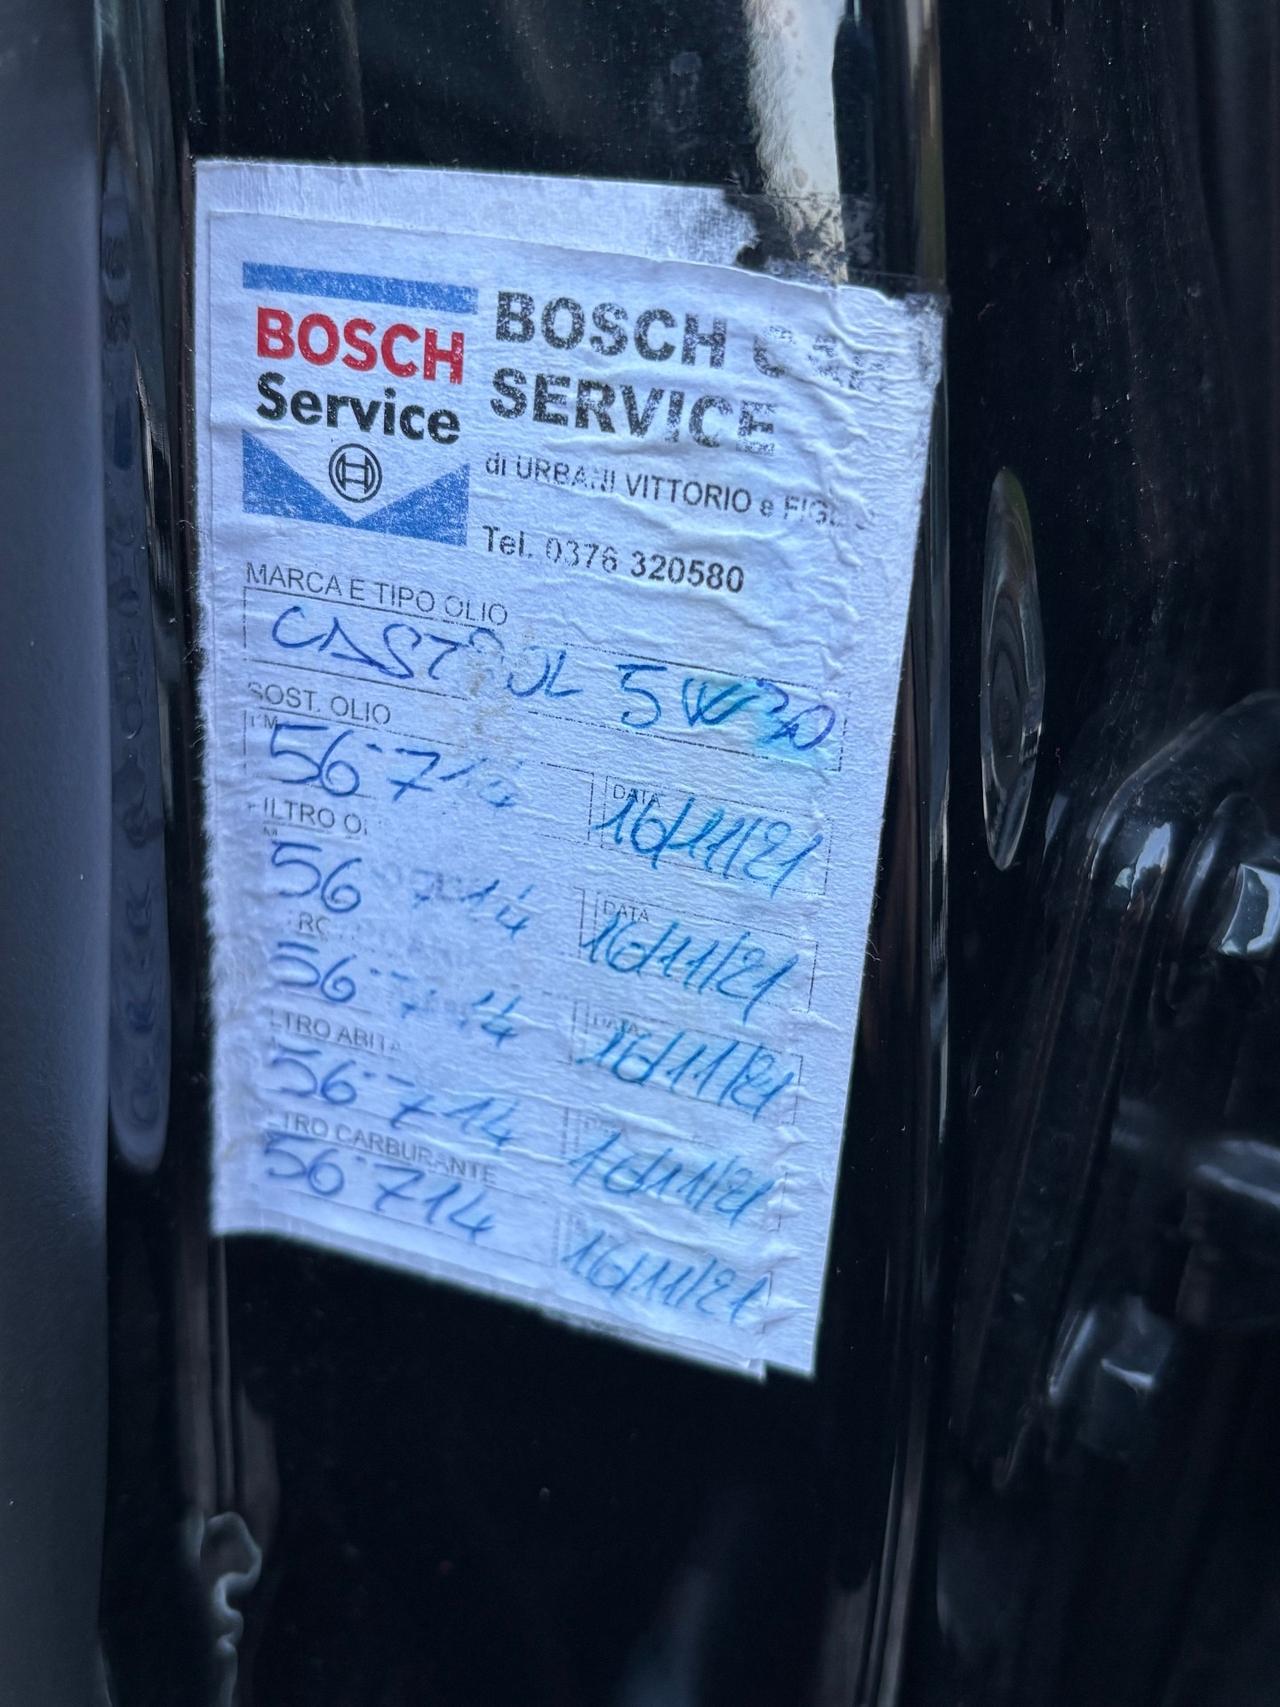 BOSCH
Service
BOSCH
SERVICE
di URBANI VITTORIO e
Tel. 0376 320580
MARCA E TIPO OLIO
CASTROL 5W30
SOST. OLIO
KM
56714
DATA
16/11/21
56714
DATA
16/11/21
56714
DATA
16/11/21
56714
16/11/21
CARBURANTE
56714
16/11/21